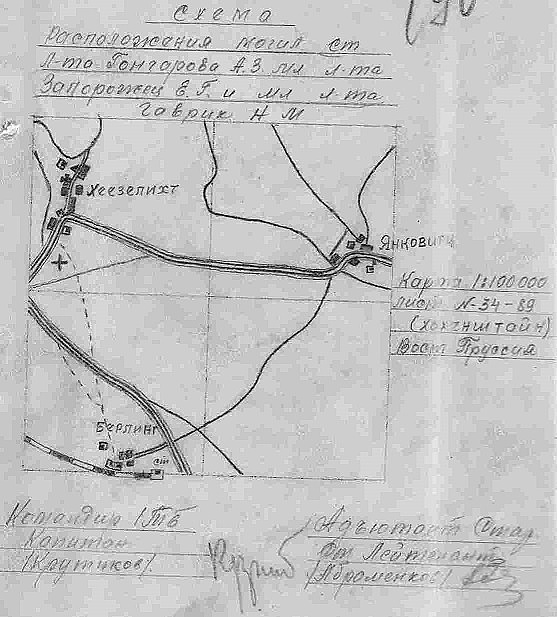 Схема
Расположения могил ст
л-та Гончарова А.З. мл л-та
Запорожец Е.Г. и мл л-та
Гаврик Н М
Хеезелихт
Янковитц
Карта 1:100 000
лист N-34-89
(Хохенштайн)
Вост Пруссия
Берлинг
Командир 1 ТБ
Капитан
(Крутиков)
Адъютант Стар
Ст Лейтенант
(Абраменков)